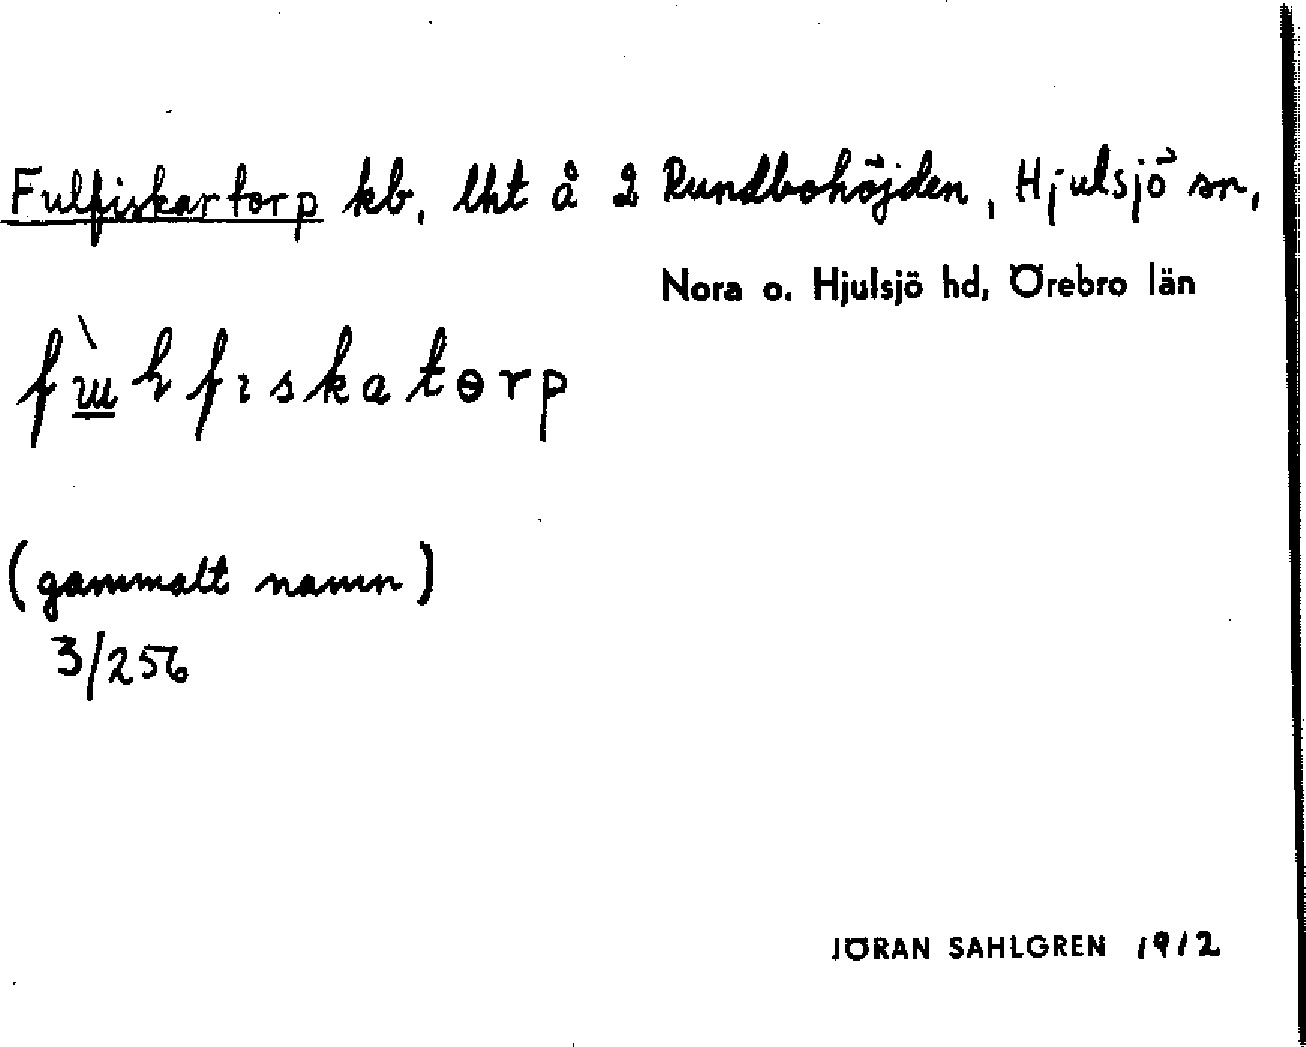 Fulfiskartorp kb, lht å 2 Rundbohöjden, Hjulsjö sn,
Nora o. Hjulsjö hd, Örebro län
(gammalt namn)
3/256
JÖRAN SAHLGREN 1912